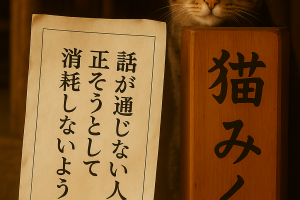 猫みく
話が通じない人
正そうとして
消耗しないよう